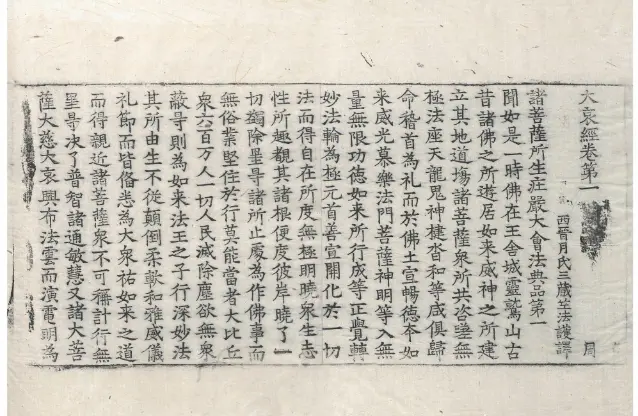 大哀經卷第一
西晉月氏三藏竺法護譯
周
諸菩薩所生莊嚴大會法典品第一
聞如是一時佛在王舍城靈鷲山古
昔諸佛之所遊居如來威神之所建
立其地道場諸菩薩衆所共咨嗟無
極法座天龍鬼神揵沓和等咸俱歸
命稽首爲礼而於佛土宣暢德本如
來威光慕樂法門菩薩神明等入無
量無限功德如來所行成等正覺轉
妙法輪爲極元首善宣開化於一切
法而得自在所度無極明曉衆生志
性所趣觀其諸根便度彼岸曉了一
切蠲除罣㝵諸所止處爲作佛事而
無俗業堅住於行莫能當者大比丘
衆六百万人一切人民滅除塵欲無衆
蔽㝵則爲如來法王之子行深妙法
其所由生不從顚倒柔軟和雅威儀
礼節而皆備悉爲大衆祐如來之道
而得親近諸菩薩衆不可稱計行無
罣㝵決了普智諸通敏慧又諸大菩
薩大慈大哀興布法雲而演電明爲